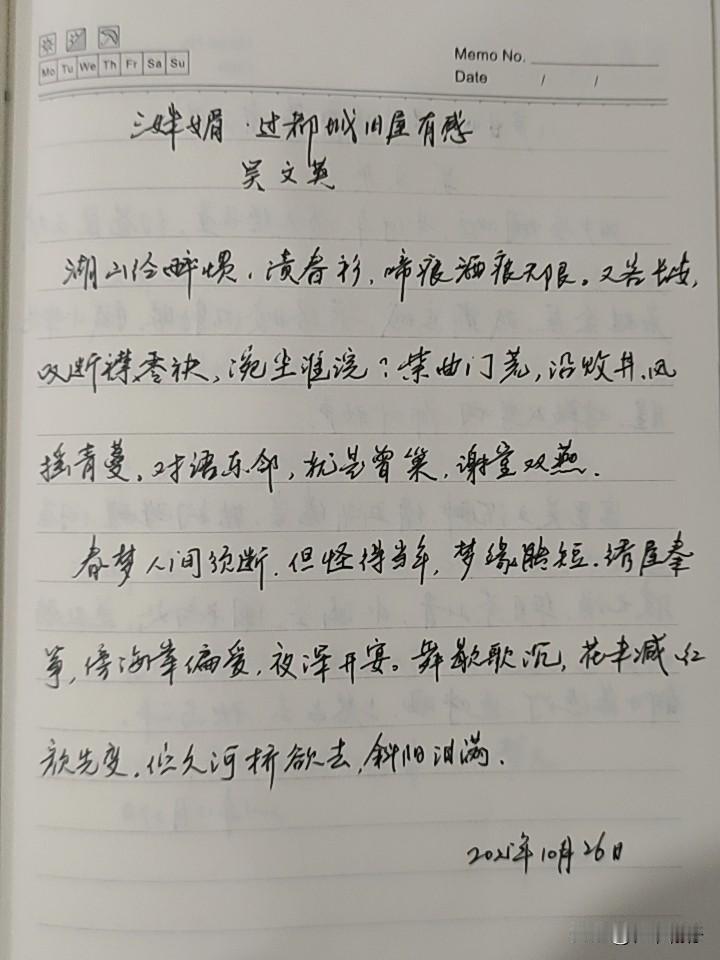 Mo Tu We Th Fr Sa Su
Memo No.
Date / /
三姝媚·过都城旧居有感
吴文英
湖山经醉惯,渍春衫,啼痕酒痕无限。又客长安,
叹断襟零袂,涴尘谁浣?紫曲门荒,沿败井、风
摇青蔓。对语东邻,犹是曾巢,谢堂双燕.
春梦人间须断.但怪得当年,梦缘能短.绣屋秦
筝,傍海棠偏爱,夜深开宴。舞歇歌沉,花未减、红
颜先变.伫久河桥欲去,斜阳泪满.
2021年10月26日